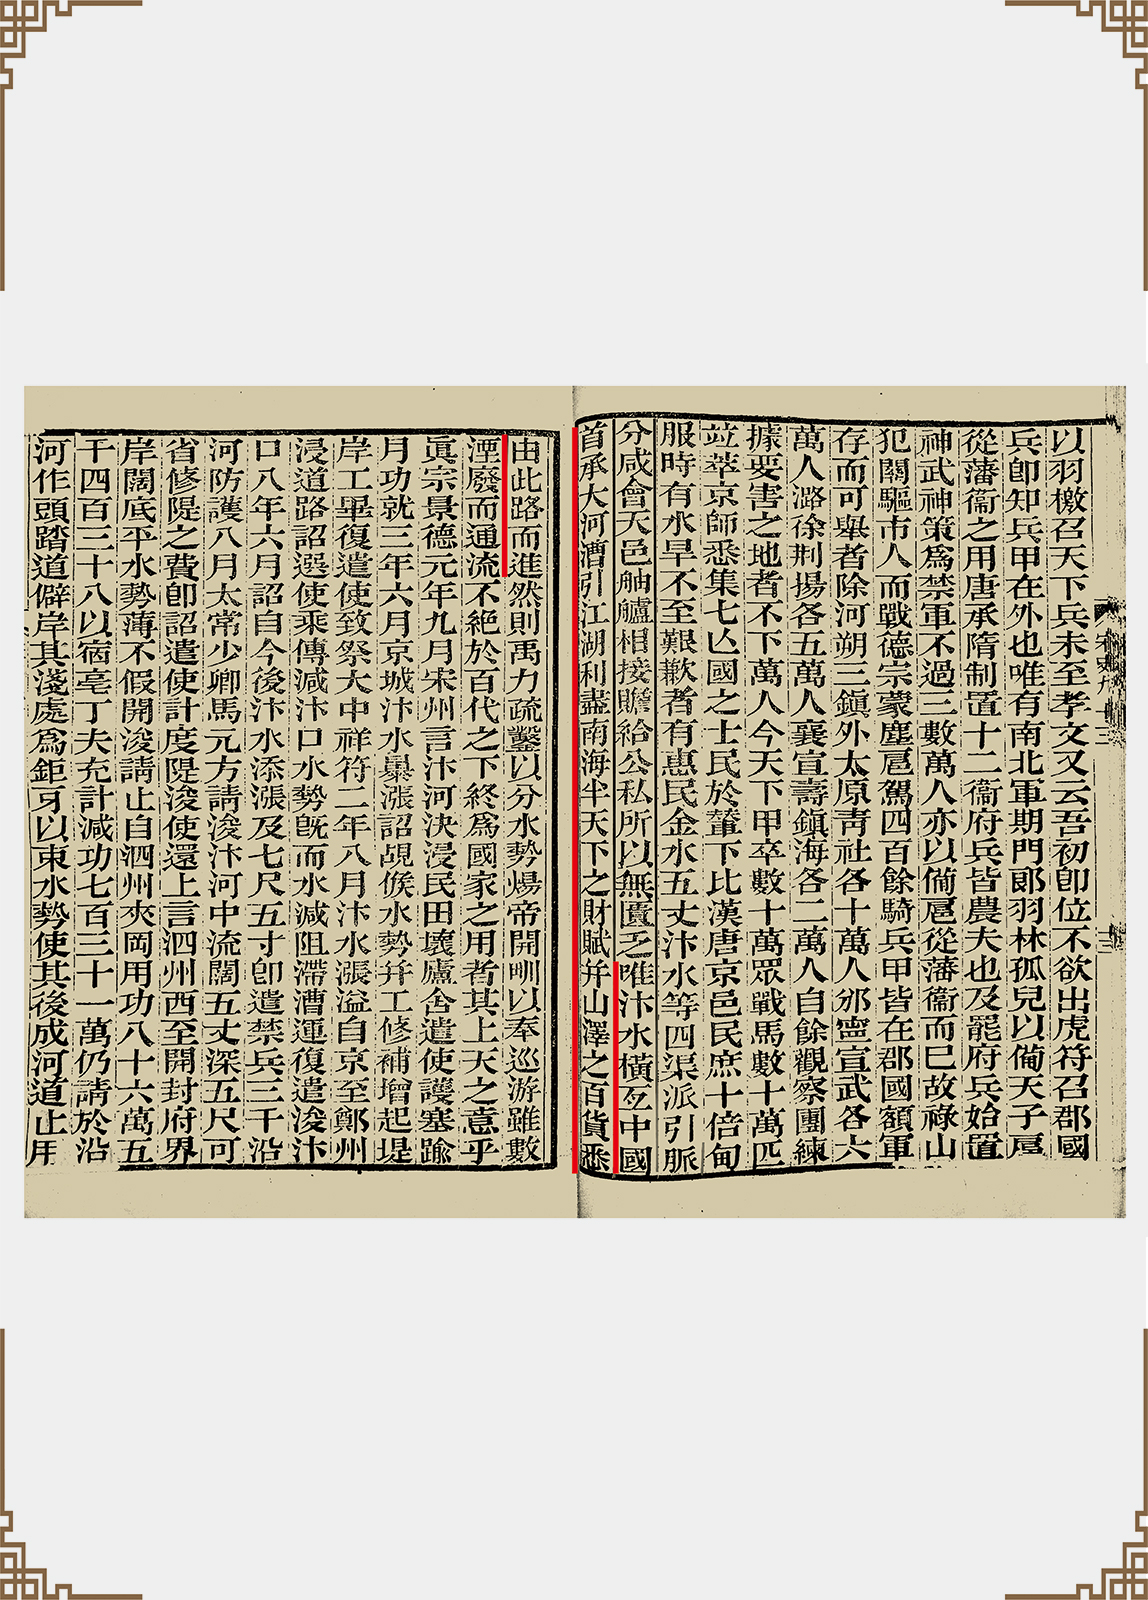 以羽檄召天下兵未至孝文又云吾初卽位不欲出虎符召郡國
兵卽知兵甲在外也唯有南北軍期門郞羽林孤兒以備天子扈
從藩衞之用唐承隋制置十二衞府兵皆農夫也及罷府兵始置
神武神策爲禁軍不過三數萬人亦以備扈從藩衞而已故祿山
犯關驅市人而戰德宗蒙塵扈駕四百餘騎兵甲皆在郡國額軍
存而可舉者除河朔三鎭外太原靑社各十萬人邠寧宣武各六
萬人潞徐荆揚各五萬人襄宣壽鎭海各二萬人自餘觀察團練
據要害之地者不下萬人今天下甲卒數十萬眾戰馬數十萬匹
竝萃京師悉集七亡國之士民於輦下比漢唐京邑民庶十倍甸
服時有水旱不至艱歉者有惠民金水五丈汴水等四渠派引脈
分咸會天邑舳艫相接贍給公私所以無匱乏唯汴水橫亙中國
首承大河漕引江湖利盡南海半天下之財賦幷山澤之百貨悉
由此路而進然則禹力疏鑿以分水勢煬帝開甽以奉巡游雖數
湮廢而通流不絕於百代之下終爲國家之用者其上天之意乎
眞宗景德元年九月宋州言汴河決浸民田壞廬舍遣使護塞踰
月功就三年六月京城汴水暴漲詔覘候水勢幷工修補增起堤
岸工畢復遣使致祭大中祥符二年八月汴水漲溢自京至鄭州
浸道路詔選使乘傳減汴口水勢旣而水減阻滯漕運復遣浚汴
口八年六月詔自今後汴水添漲及七尺五寸卽遣禁兵三千沿
河防護八月太常少卿馬元方請浚汴河中流闊五丈深五尺可
省修隄之費卽詔遣使計度隄浚使還上言泗州西至開封府界
岸闊底平水勢薄不假開浚請止自泗州夾岡用功八十六萬五
千四百三十八以宿亳丁夫充計減功七百三十一萬仍請於沿
河作頭踏道僻岸其淺處爲鋸牙以束水勢使其後成河道止用